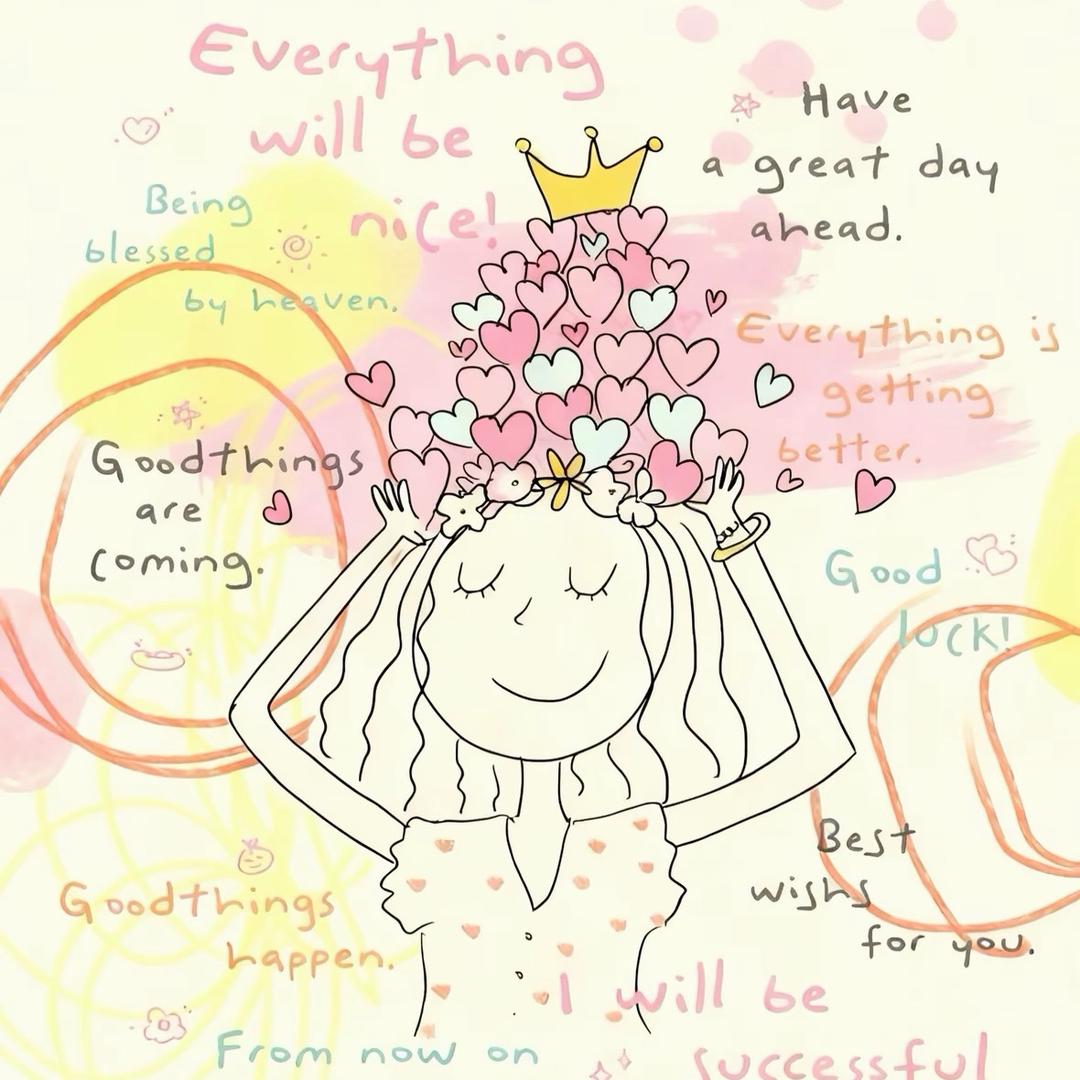 Everything
will be
nice!
Have
a great day
ahead.
Being
blessed
by heaven.
Everything is
getting
better.
Goodthings
are
coming.
Good
luck!
Best
wishs
for you.
Goodthings
happen.
I will be
successful
From now on